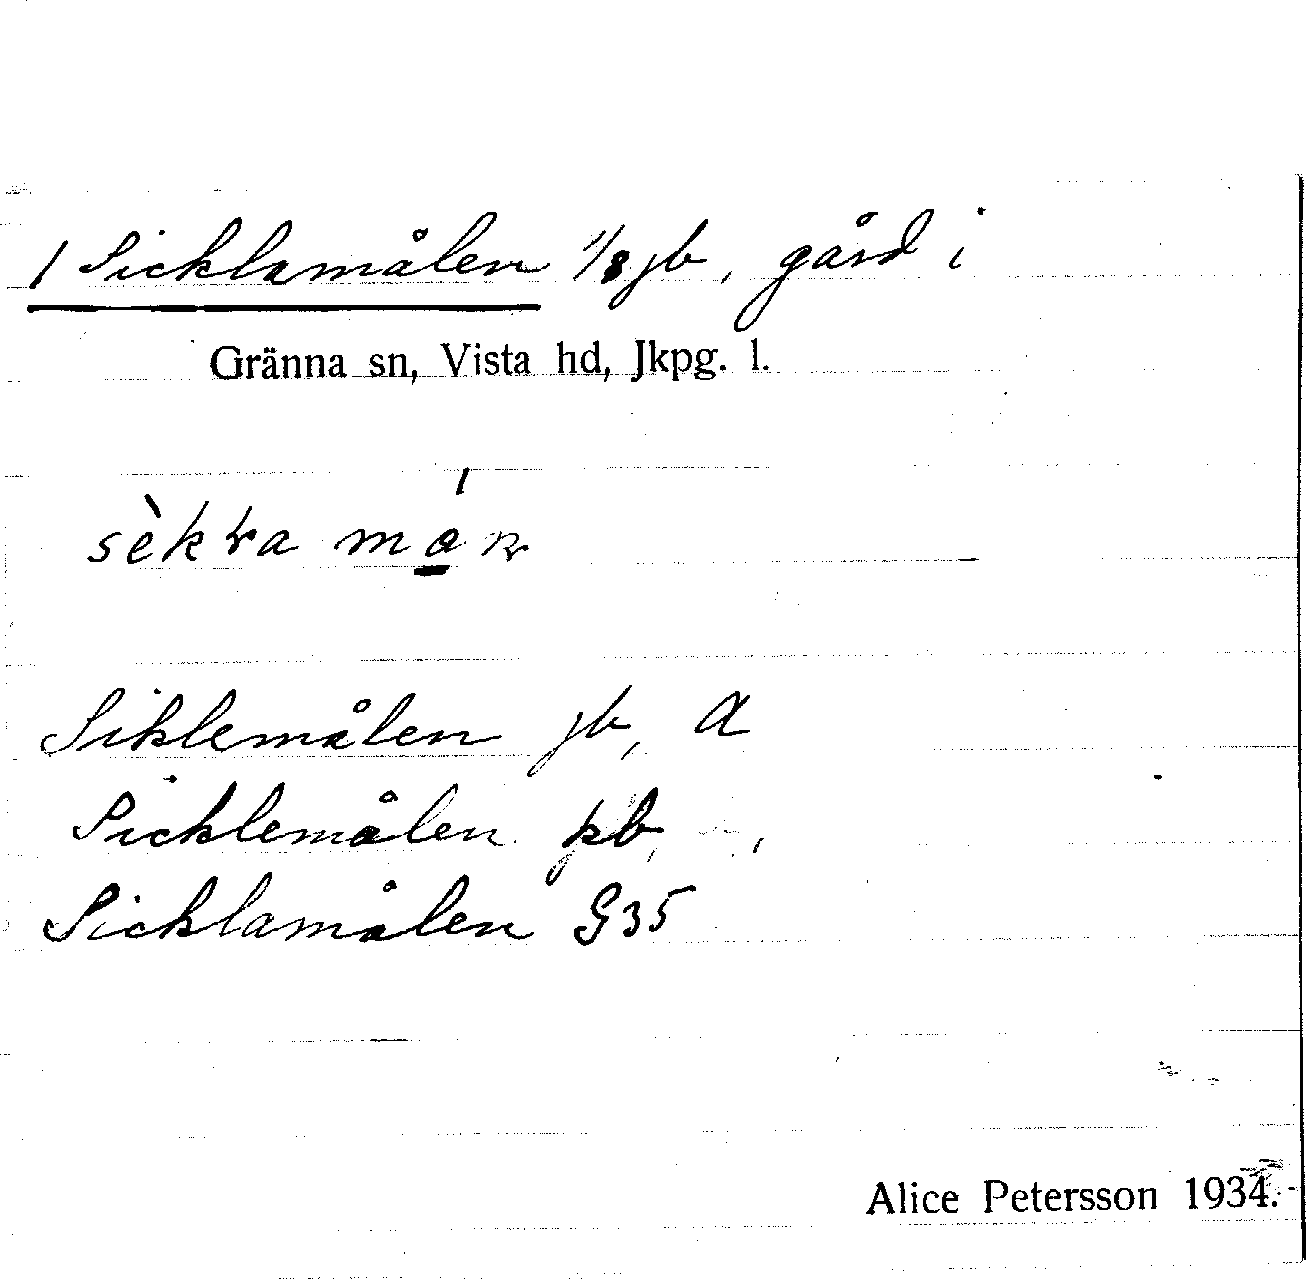 1 Sicklamålen 1/8 jb, gård i
Gränna sn, Vista hd, Jkpg. l.
Siklemålen jb, a
Sicklemålen kb,
Sicklamålen G35
Alice Petersson 1934.